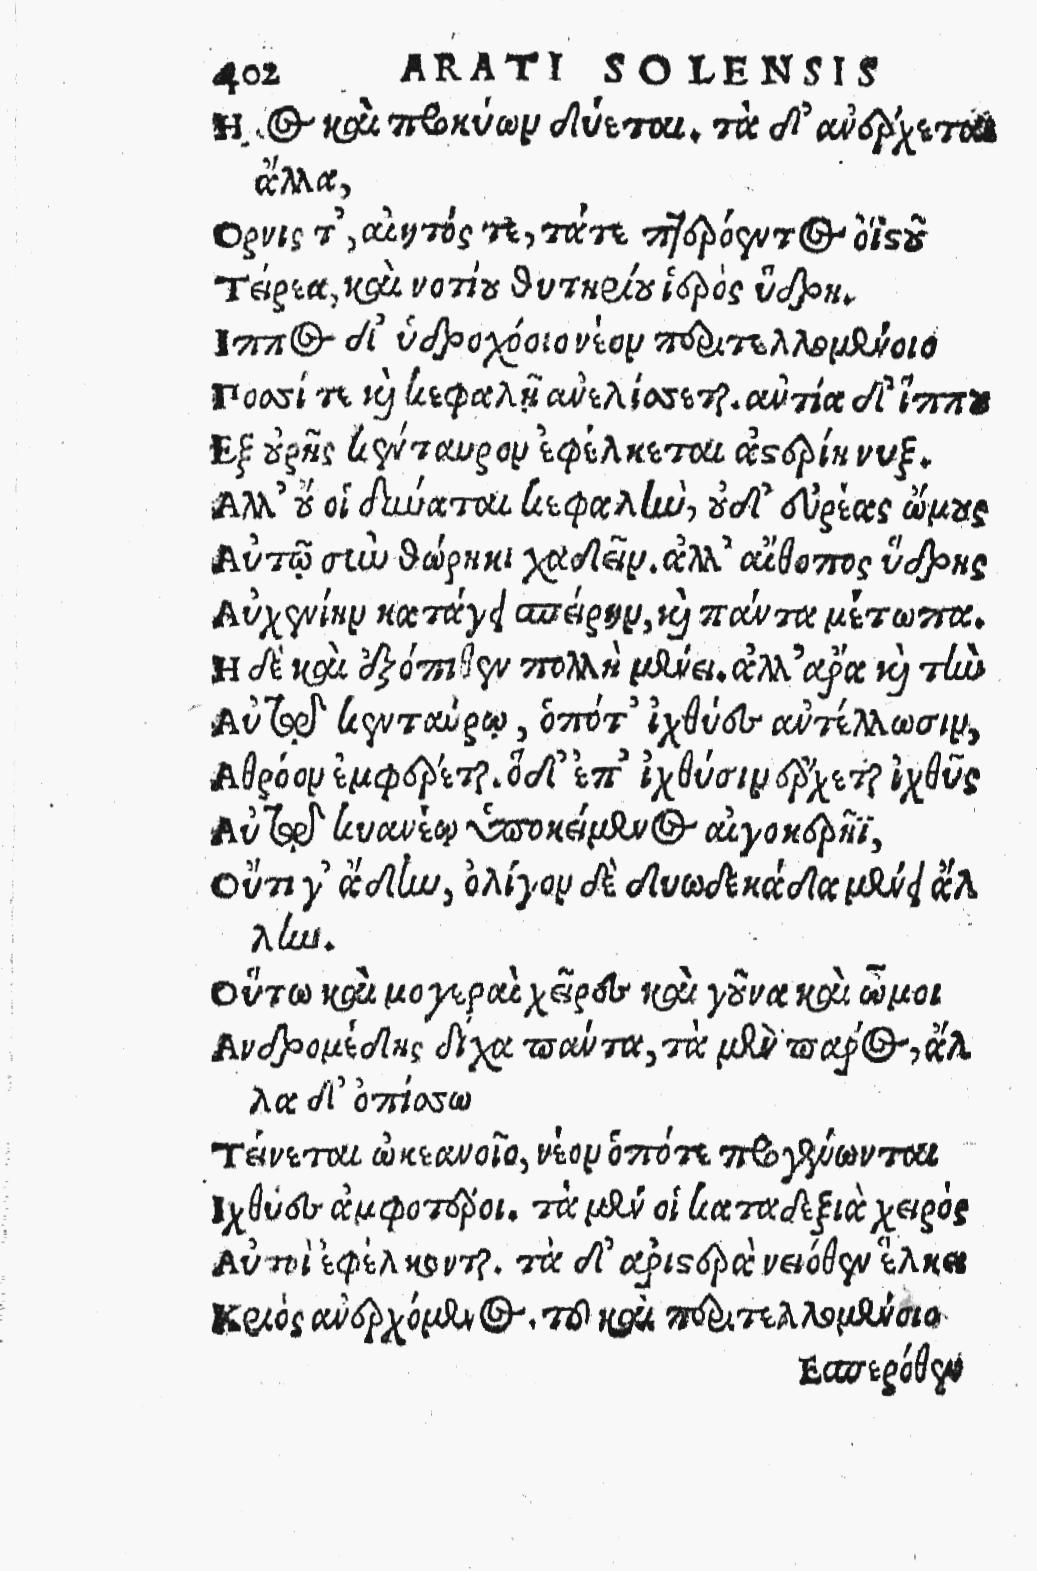 402 ARATI SOLENSIS
Ημος καὶ προκύων δύεται. τὰ δ' ἀνέρχεται
ἄλλα,
Ορνις τ', αἰητός τε, τάτε πτερόεντος ὀϊστοῦ
Τείρεα, καὶ νοτίου θυτηρίου ἱερὸς ἕδρη.
Ιππος δ' ὑδροχόοιο νέον περιτελλομένοιο
Ποσσί τε καὶ κεφαλῇ ἀνελίσσεται. ἀντία δ' ἵππου
Εξ οὐρῆς κένταυρον ἐφέλκεται ἀστερίη νυξ.
Αλλ' οὔ οἱ δύναται κεφαλὴν, οὐδ' εὐρέας ὤμους
Αὐτῷ σὺν θώρηκι χαδεῖν. ἀλλ' αἴθοπος ὕδρης
Αὐχενίην κατάγει σπείρην, καὶ πάντα μέτωπα.
Η δὲ καὶ ἐξόπιθεν πολλὴ μένει. ἀλλ' ἄρα καὶ τὴν
Αὐτῷ κενταύρῳ, ὁπότ' ἰχθύες ἀντέλλωσιν,
Αθρόον ἐμφέρεται. ὅδ' ἐπ' ἰχθύσιν ἔρχεται ἰχθῦς
Αὐτῷ κυανέῳ ὑποκείμενος αἰγοκερῆϊ,
Οὔτι γ' ἄδην, ὀλίγον δὲ δυωδεκάδα μένει ἄλ
λην.
Οὕτω καὶ μογεραὶ χεῖρες καὶ γοῦνα καὶ ὦμοι
Ανδρομέδης δίχα πάντα, τὰ μὲν πάρος, ἄλ
λα δ' ὀπίσσω
Τείνεται ὠκεανοῖο, νέον ὁπότε προγένωνται
Ιχθύες ἀμφοτέροι. τὰ μέν οἱ κατὰ δεξιὰ χειρὸς
Αὐτοὶ ἐφέλκονται. τὰ δ' ἀριστερὰ νειόθεν ἕλκει
Κριὸς ἀνερχόμενος. τοῦ καὶ περιτελλομένοιο
Εσπερόθεν